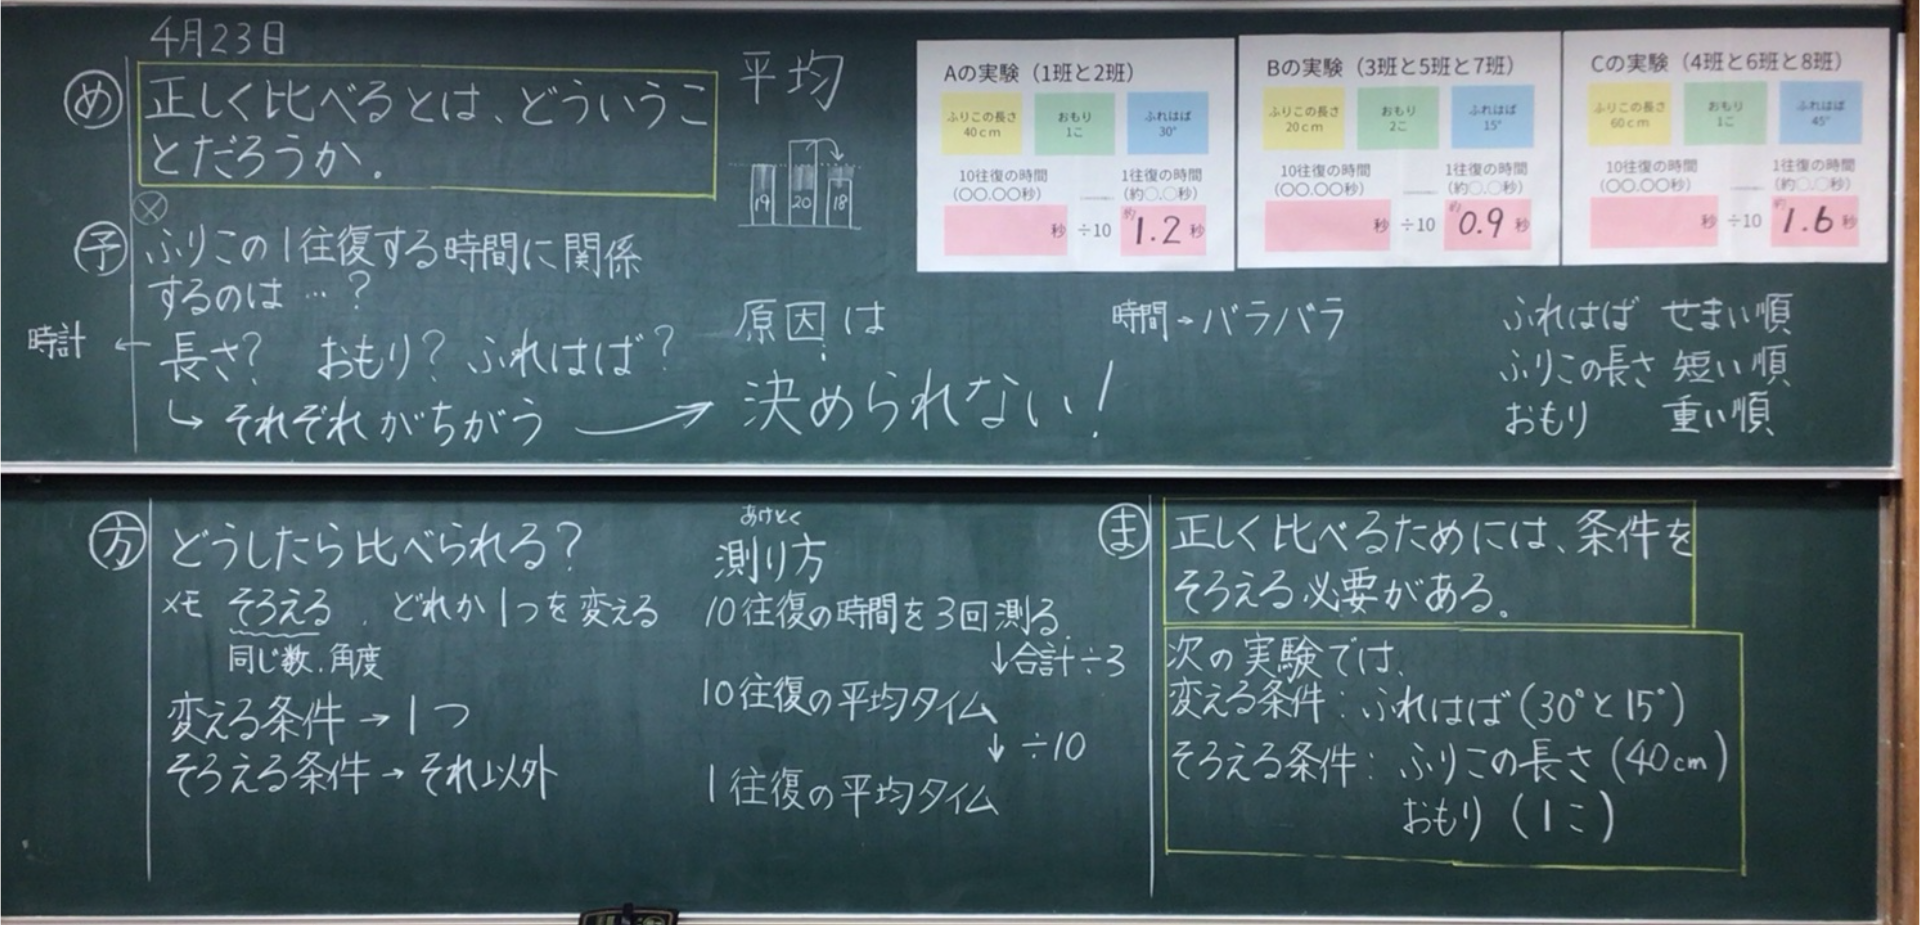 4月23日
め
正しく比べるとは、どういうこ
とだろうか。
予
ふりこの1往復する時間に関係
するのは…?
時計 ← 長さ? おもり? ふれはば?
↳ それぞれがちがう →
平均
19 20 18
原因は
決められない!
Aの実験(1班と2班)
ふりこの長さ
40cm
おもり
1こ
ふれはば
30°
10往復の時間
(○○.○○秒)
1往復の時間
(約○.○秒)
秒 ÷10 約1.2秒
Bの実験(3班と5班と7班)
ふりこの長さ
20cm
おもり
2こ
ふれはば
15°
10往復の時間
(○○.○○秒)
1往復の時間
(約○.○秒)
秒 ÷10 約0.9秒
Cの実験(4班と6班と8班)
ふりこの長さ
60cm
おもり
1こ
ふれはば
45°
10往復の時間
(○○.○○秒)
1往復の時間
(約○.○秒)
秒 ÷10 約1.6秒
時間→バラバラ
ふれはば せまい順
ふりこの長さ 短い順
おもり 重い順
方
どうしたら比べられる?
メモ そろえる . どれか1つを変える
同じ数.角度
変える条件→1つ
そろえる条件→それ以外
あけとく
測り方
10往復の時間を3回測る
↓合計÷3
10往復の平均タイム
↓ ÷10
1往復の平均タイム
ま
正しく比べるためには、条件を
そろえる必要がある。
次の実験では、
変える条件:ふれはば(30°と15°)
そろえる条件:ふりこの長さ(40cm)
おもり(1こ)